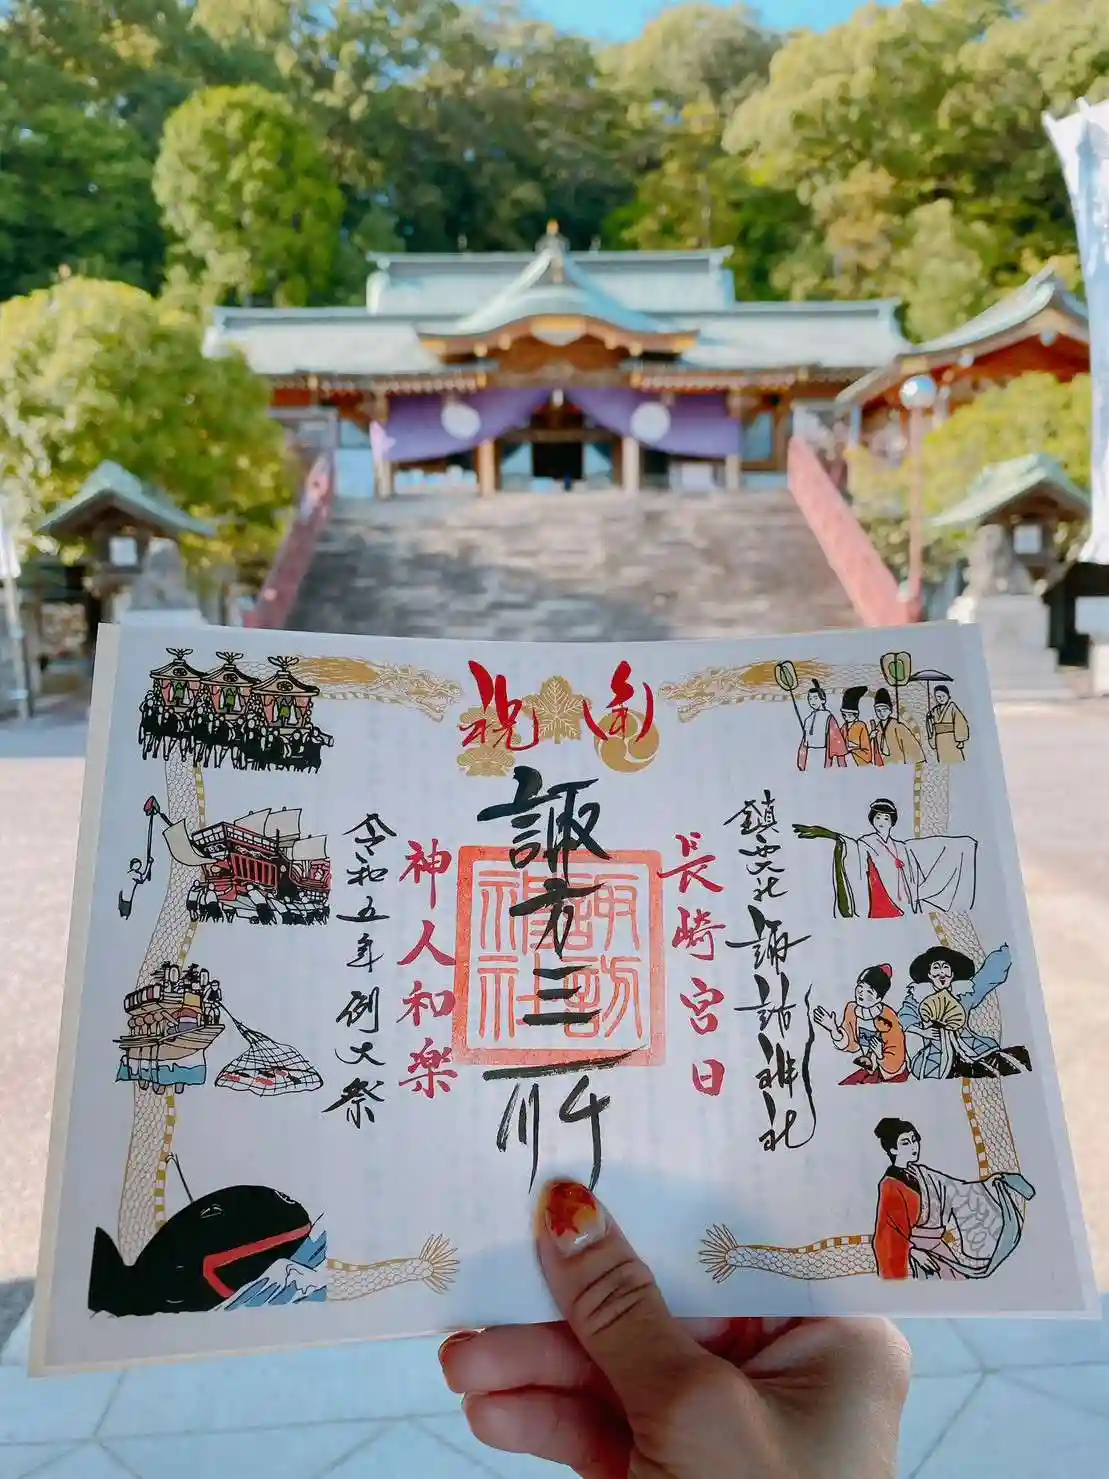 祝
長崎宮日
鎮西大社諏訪神社
諏方三所
諏訪
神社
神人和楽
令和五年例大祭